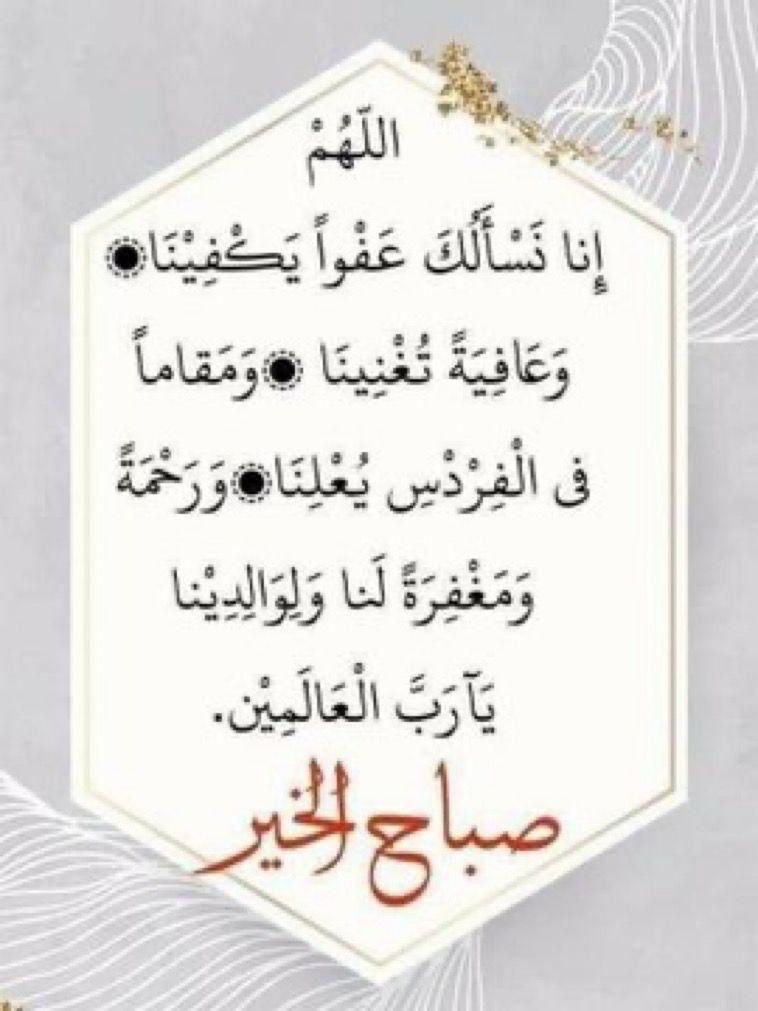 اللّهُمْ
إِنا نَسْأَلُكَ عَفْواً يَكْفِيْنَا◉
وَعَافِيَةً تُغْنِينَا ◉وَمَقاماً
فى الْفِرْدْسِ يُعْلِنَا◉وَرَحْمَةً
وَمَغْفِرَةً لَنا وَلِوَالِدِيْنا
يَآرَبَّ الْعَالَمِيْن.
صباح الخير